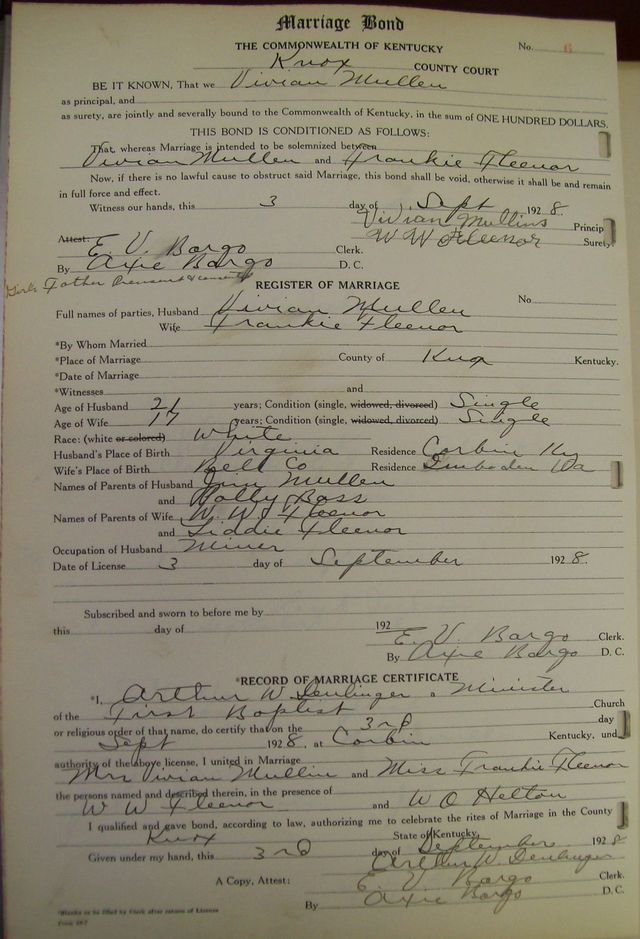 Marriage Bond
THE COMMONWEALTH OF KENTUCKY No. 6
Knox COUNTY COURT
BE IT KNOWN, That we Vivian Mullen
as principal, and
as surety, are jointly and severally bound to the Commonwealth of Kentucky, in the sum of ONE HUNDRED DOLLARS.
THIS BOND IS CONDITIONED AS FOLLOWS:
That, whereas Marriage is intended to be solemnized between
Vivian Mullen and Frankie Fleenor
Now, if there is no lawful cause to obstruct said Marriage, this bond shall be void, otherwise it shall be and remain
in full force and effect.
Witness our hands, this 3 day of Sept 1928.
Vivian Mullins Princip
Attest: W W Fleenor Surety
E. V. Bargo Clerk.
By Axie Bargo D. C.
Girls Father
REGISTER OF MARRIAGE
Full names of parties, Husband Vivian Mullen No.
Wife Frankie Fleenor
*By Whom Married
*Place of Marriage County of Knox Kentucky.
*Date of Marriage
*Witnesses and
Age of Husband 21 years; Condition (single, widowed, divorced) Single
Age of Wife 17 years; Condition (single, widowed, divorced) Single
Race: (white or colored) White
Husband's Place of Birth Virginia Residence Corbin Ky
Wife's Place of Birth Bell Co Residence Imboden Va
Names of Parents of Husband Jim Mullen
and Polly Boss
Names of Parents of Wife W. W. Fleenor
and Liddie Fleenor
Occupation of Husband Miner
Date of License 3 day of September 1928.
Subscribed and sworn to before me by
this day of 192
E. V. Bargo Clerk.
By Axie Bargo D. C.
*RECORD OF MARRIAGE CERTIFICATE
*I, Arthur W Denlinger a Minister
of the First Baptist Church
or religious order of that name, do certify that on the 3rd day
Sept 1928, at Corbin Kentucky, und
authority of the above license, I united in Marriage
Mrs Vivian Mullin and Miss Frankie Fleenor
the persons named and described therein, in the presence of
W W Fleenor and W O Helton
I qualified and gave bond, according to law, authorizing me to celebrate the rites of Marriage in the County
Knox State of Kentucky.
Given under my hand, this 3rd day of September 1928
Arthur W. Denlinger
A Copy, Attest: E. V. Bargo Clerk.
By Axie Bargo D. C.
*Blanks to be filled by Clerk after return of License